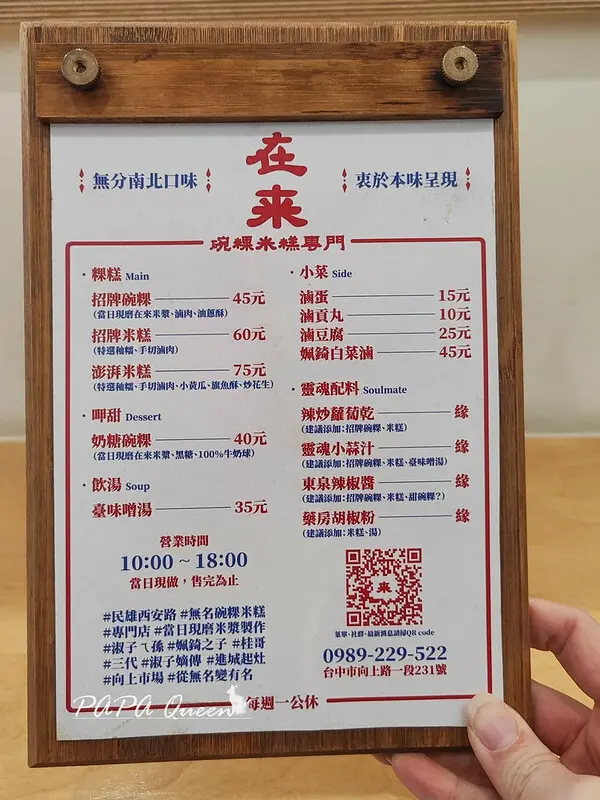 無分南北口味
在来
衷於本味呈現
碗粿米糕專門
・粿糕 Main
招牌碗粿 45元
(當日現磨在來米漿、滷肉、油蔥酥)
招牌米糕 60元
(特選秈糯、手切滷肉)
澎湃米糕 75元
(特選秈糯、手切滷肉、小黃瓜、旗魚酥、炒花生)
・呷甜 Dessert
奶糖碗粿 40元
(當日現磨在來米漿、黑糖、100%牛奶球)
・飲湯 Soup
臺味噌湯 35元
營業時間
10:00 ~ 18:00
當日現做,售完為止
#民雄西安路 #無名碗粿米糕
#專門店 #當日現磨米漿製作
#淑子ㄟ孫 #姵錡之子 #桂哥
#三代 #淑子嫡傳 #進城起灶
#向上市場 #從無名變有名
・小菜 Side
滷蛋 15元
滷貢丸 10元
滷豆腐 25元
姵錡白菜滷 45元
・靈魂配料 Soulmate
辣炒蘿蔔乾 緣
(建議添加:招牌碗粿、米糕)
靈魂小蒜汁 緣
(建議添加:招牌碗粿、米糕、臺味噌湯)
東泉辣椒醬 緣
(建議添加:招牌碗粿、米糕、甜碗粿?)
藥房胡椒粉 緣
(建議添加:米糕、湯)
来
菜單、社群、最新消息請掃QR code
0989-229-522
台中市向上路一段231號
每週一公休
PAPA Queen